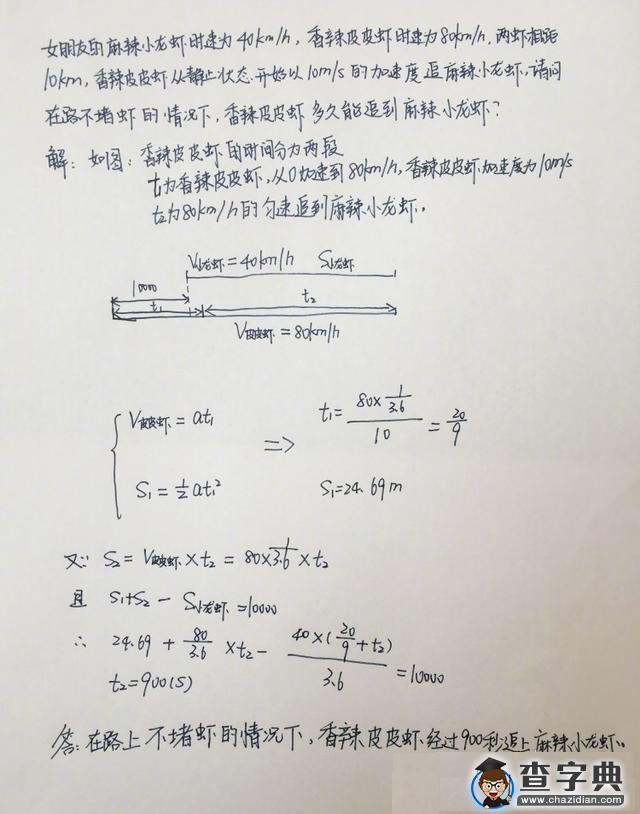 女朋友的麻辣小龙虾时速为40km/h,香辣皮皮虾时速为80km/h,两虾相距
10km,香辣皮皮虾从静止状态开始以10m/s的加速度追麻辣小龙虾,请问
在路不堵虾的情况下,香辣皮皮虾多久能追到麻辣小龙虾?
解:如图:香辣皮皮虾的时间分为两段
t₁为香辣皮皮虾,从0加速到80km/h,香辣皮皮虾加速度为10m/s
t₂为80km/h的匀速追到麻辣小龙虾。
V小龙虾=40km/h S小龙虾
10000
t₁ t₂
V皮皮虾=80km/h
V皮皮虾=at₁ => t₁=(80×1/3.6)/10=20/9
S₁=½at₁² S₁=24.69m
又∵ S₂=V皮皮虾×t₂=80×1/3.6×t₂
且 S₁+S₂-S小龙虾=10000
∴ 24.69+80/3.6×t₂-40×(20/9+t₂)/3.6=10000
t₂=900(s)
答:在路上不堵虾的情况下,香辣皮皮虾经过900秒追上麻辣小龙虾。
查字典
www.chazidian.com